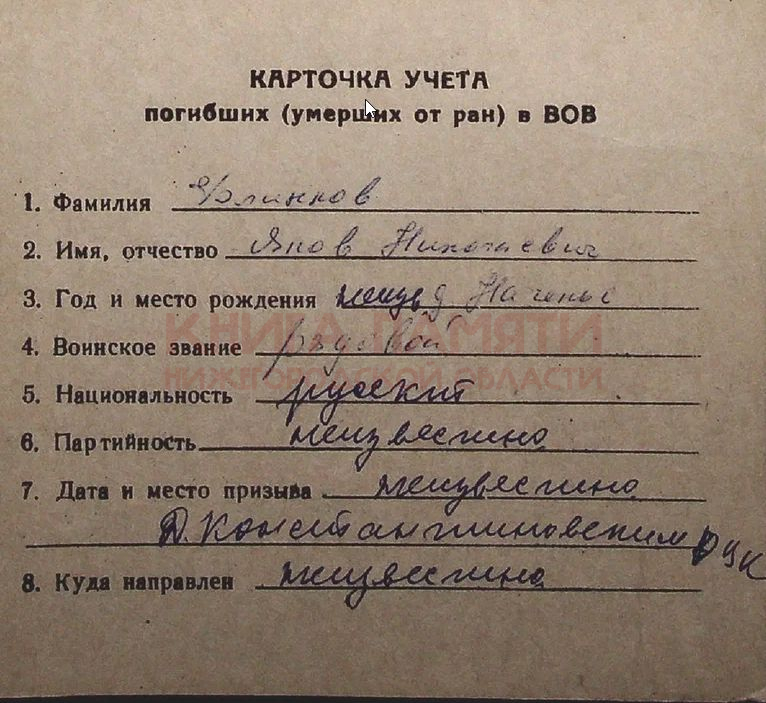 КАРТОЧКА УЧЕТА
погибших (умерших от ран) в ВОВ
1. Фамилия Блинков
2. Имя, отчество Яков Николаевич
3. Год и место рождения неизв д
4. Воинское звание рядовой
КНИГА ПАМЯТИ
НИЖЕГОРОДСКОЙ ОБЛАСТИ
5. Национальность русский
6. Партийность неизвестно
7. Дата и место призыва неизвестно
Д. Константиновским РУК
8. Куда направлен неизвестно